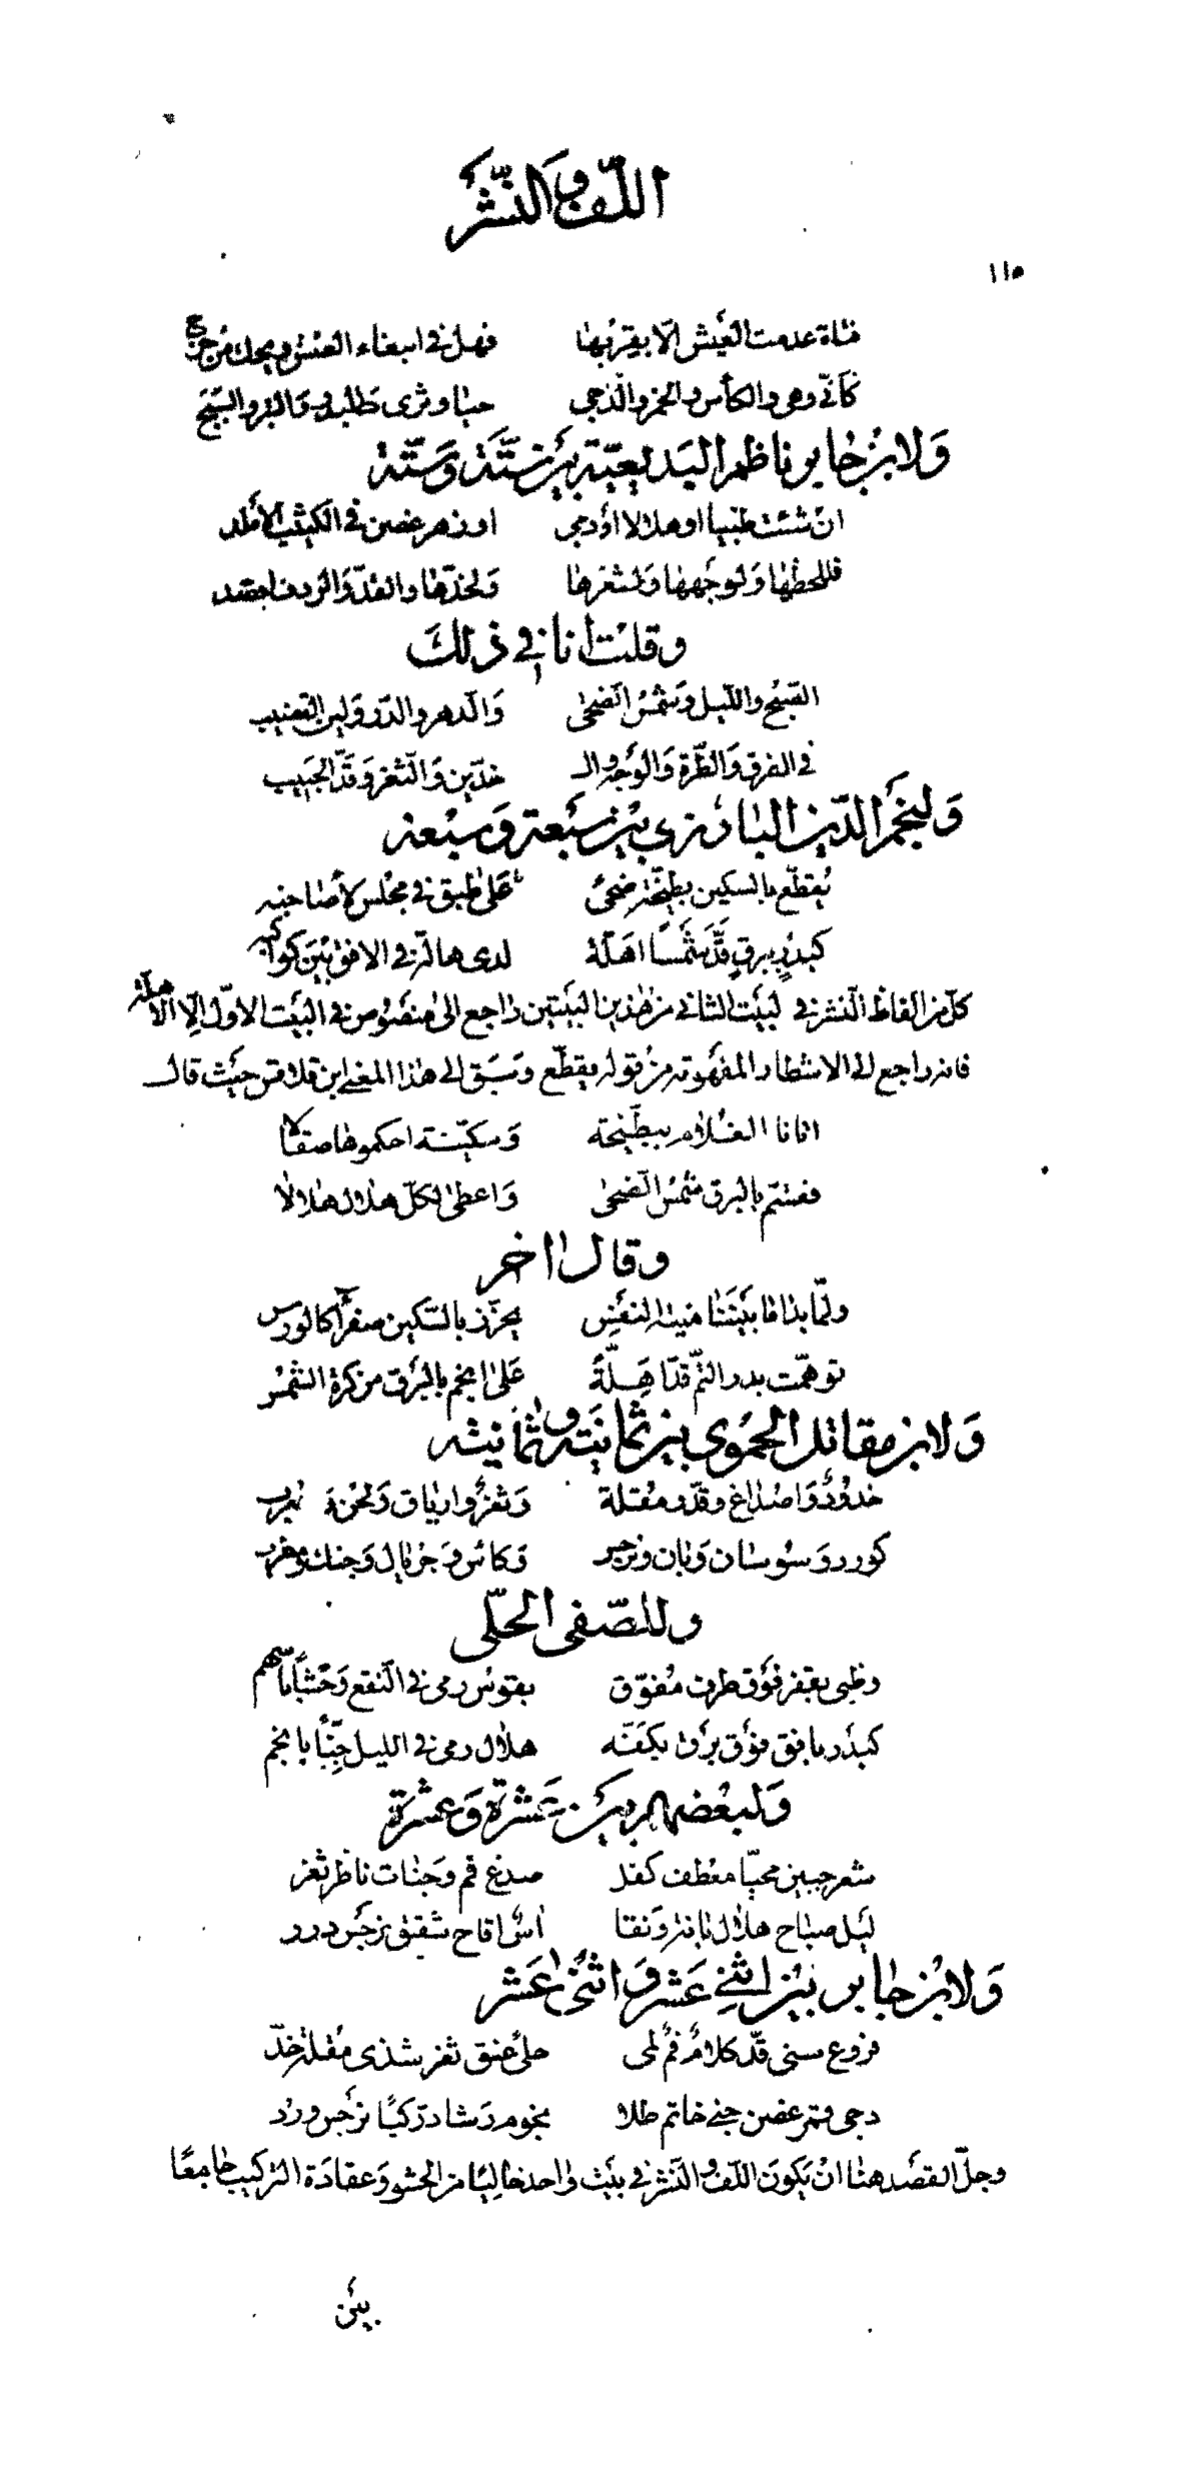 اللّف والنّشر
١١٥
فتاة عدمت العيش الّا بقربها فهل في ابتغاء العيش ويحك من حرج
كأنّي وهي والكأس والخمر والدّجى حيا وثرى والدر والتبر والسّبج
ولابن جابر ناظم البديعيّة بين ستّة وستّة
ان شئت ظبيا او هلالا او دجى او زهر غصن في الكثيب الأملد
فللحظها ولوجهها ولشعرها ولخدّها والقدّ والرّدف اقصد
وقلت انا في ذلك
الصّبح والليل وشمس الضّحى والدّرّ ولين القضيب
في الفرق والطّرة والوجه والـ خدّين والثّغر وقدّ الحبيب
ولنجم الدّين البارزي بين سبعة وسبعة
يُقطّع بالسكين بطيخة ضحىً على طبق في مجلس لأصاحبه
كبدرٍ ببرقٍ قدّ شمسًا اهلّة لدى هالة في الافق بين كواكبه
كلّ من الفاظ النّشر في البيت الثاني من هذين البيتين راجع الى منصوص في البيت الاوّل الّا الاهلّة
فانه راجع الى الاشطار المفهومة من قوله يقطّع وسبق الى هذا المعنى ابن قلاقس حيث قال
اتانا الغلام ببطّيخة وسكّينة احكموها صقالا
فقسّم بالبرق شمس الضّحى واعطى لكلّ هلال هلالا
وقال آخر
ولمّا بدا ما بيننا منية النفس يحزّز بالسّكين صفراً كالورس
توهّمت بدر التّمّ قدّ اهلّةً على انجم بالبرق من كرة الشّمس
ولابن مقاتل الحموي بين ثمانية وثمانية
خدودٌ واصداغ وقدّ ومقلة وثغر وارياق ولحن ومعرب
كورد وسوسان وبان ونرجس وكاس وجريال وجنك ومطرب
وللصّفي الحلّي
وظبي بقفر فوق طرف مفوّق بقوس رمى في النّقع وحشاً بأسهم
كبدر بأفق فوق برق بكفّه هلال رمى في الليل جنّاً بانجم
ولبعضهم بين عشرة وعشرة
شعر جبين محيّا معطف كفل صدغ فم وجنات ناظر ثغر
ليل صباح هلال بانة ونقا آس اقاح شقيق نرجس درر
ولابن جابر بين اثني عشر واثنى عشر
فروع سنى قدّ كلام فم لمى حلى عنق ثغر شذى مقلة خدّ
دجى وقمر غصن جنى خاتم طلا نجوم رشا درّ كبا نرجس ورد
وجلّ القصد هنا ان يكون اللّف والنّشر في بيت واحد خاليًا من الحشو وعقادة التركيب جامعًا
بين